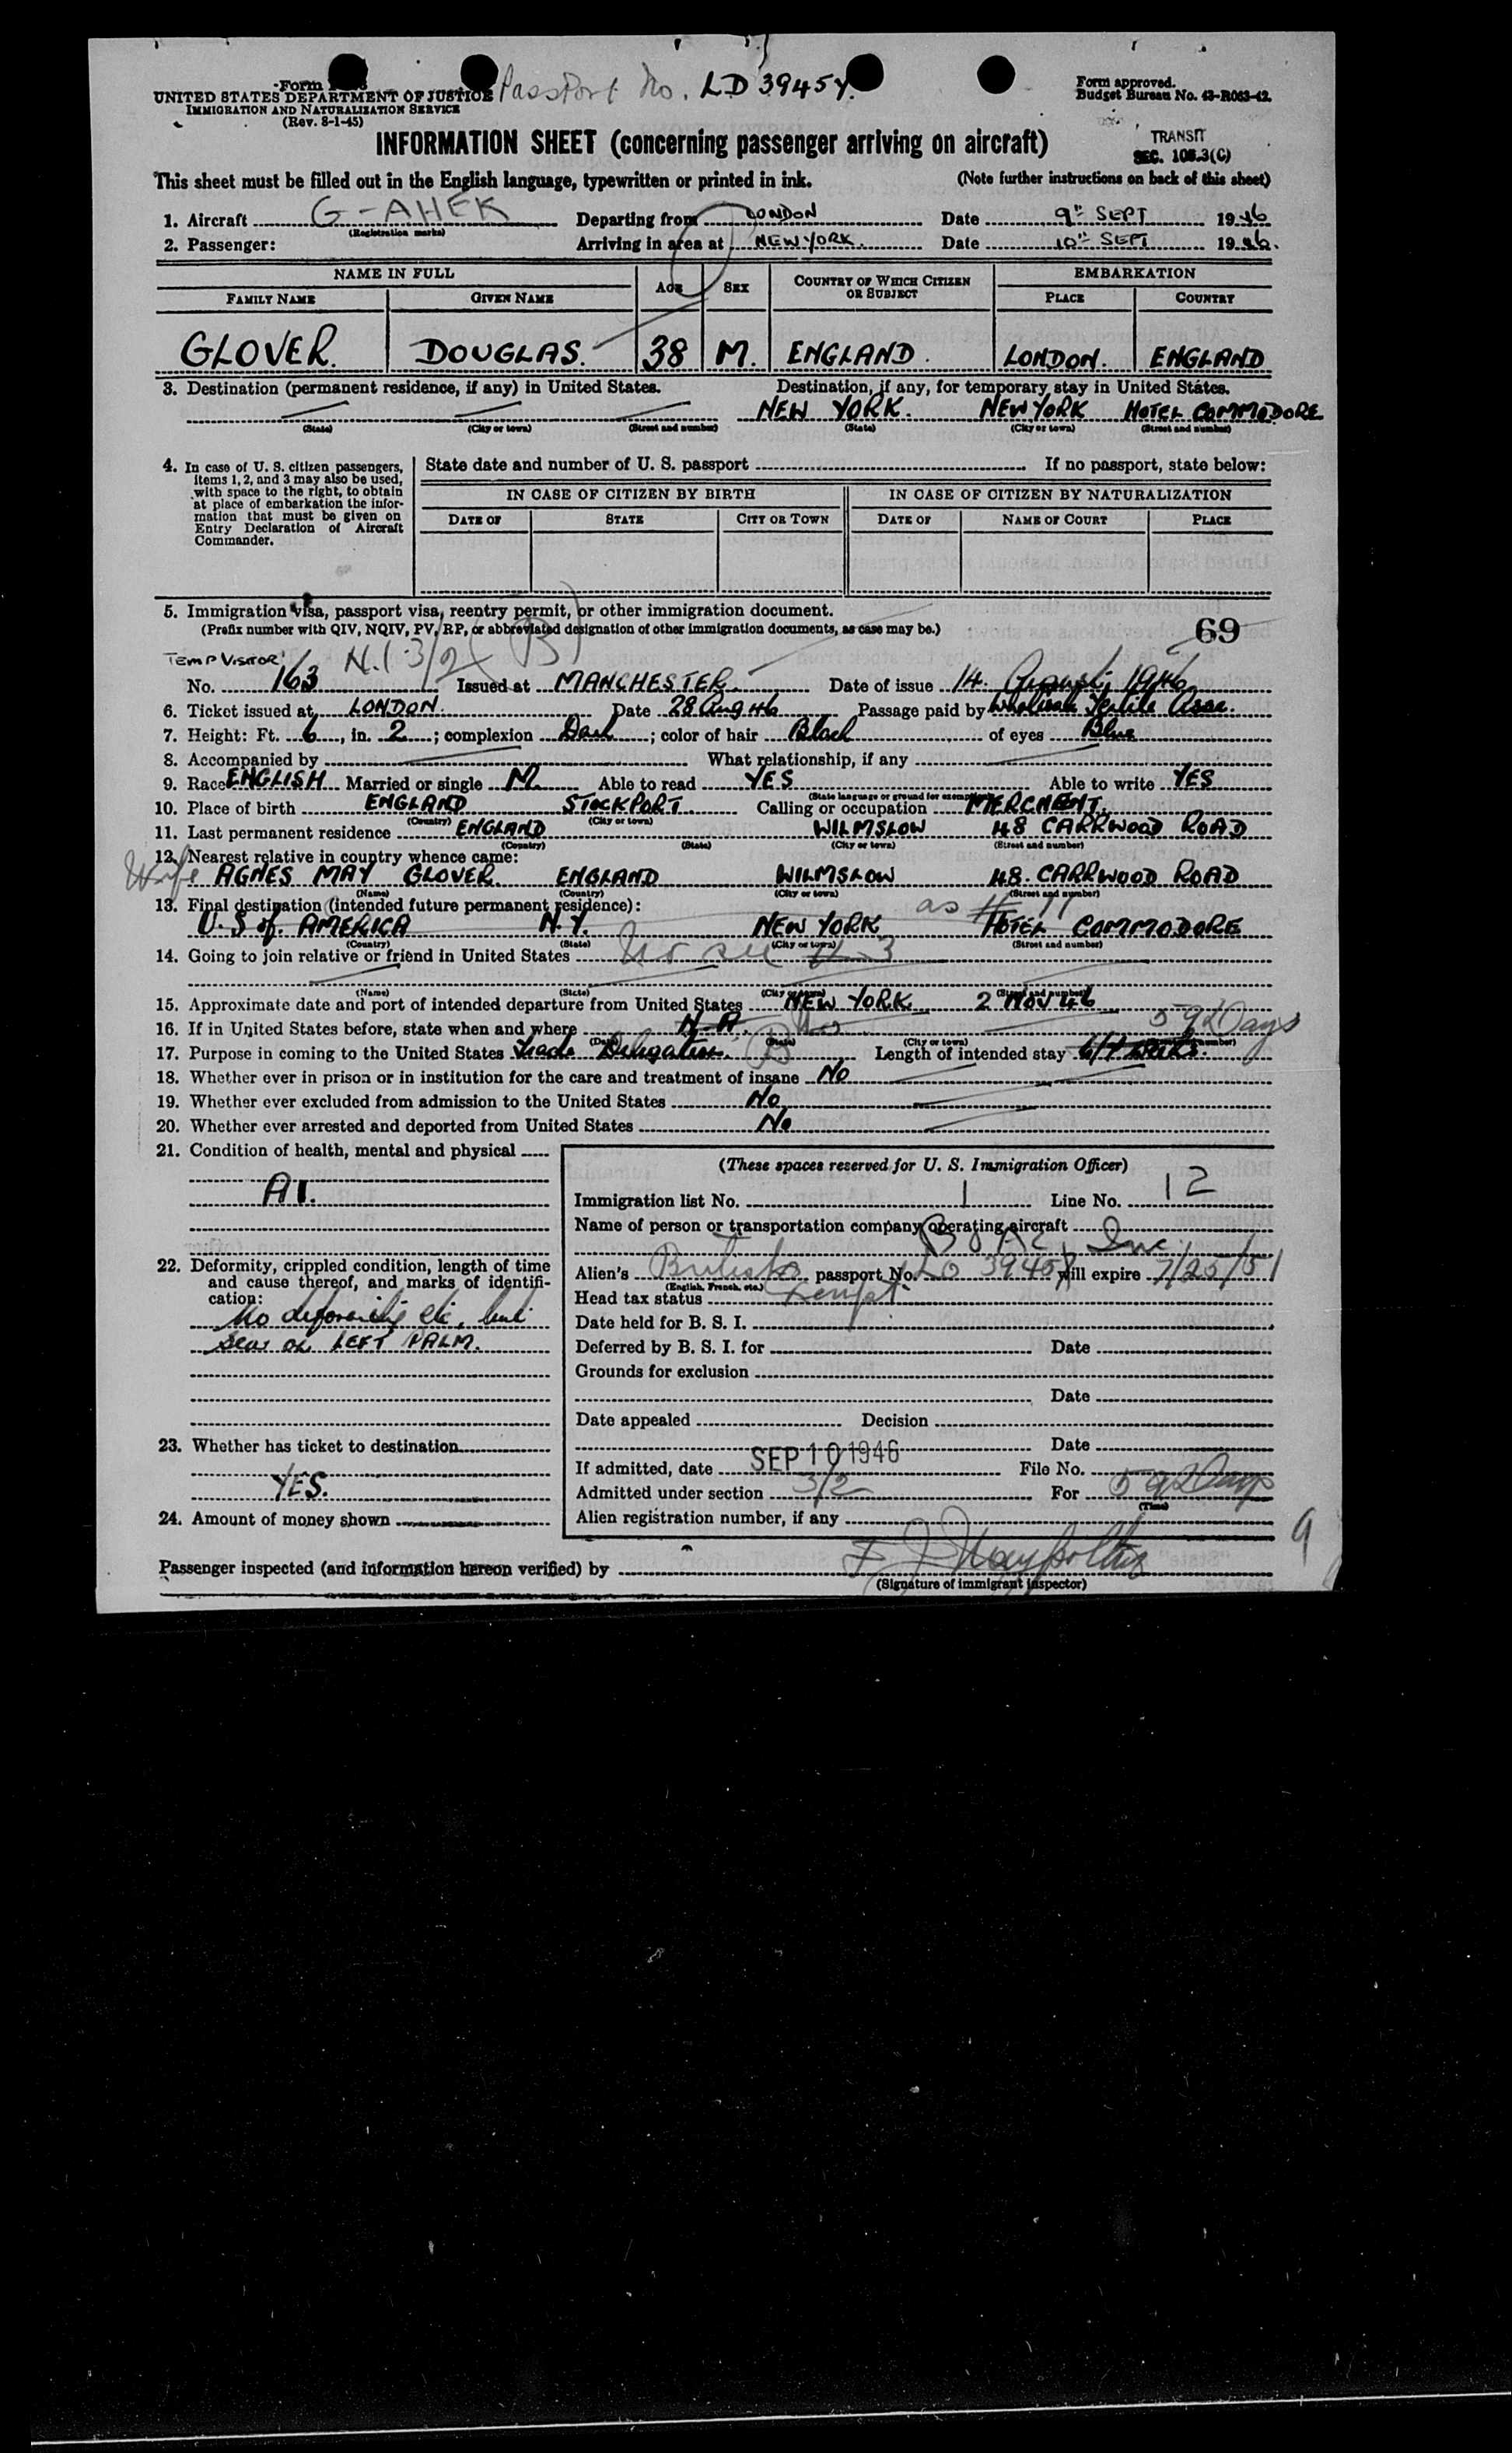 Form
Passport No. LD 39457.
UNITED STATES DEPARTMENT OF JUSTICE
IMMIGRATION AND NATURALIZATION SERVICE
(Rev. 8-1-45)
Form approved.
Budget Bureau No. 43-R063-42.
INFORMATION SHEET (concerning passenger arriving on aircraft)
TRANSIT
SEC. 108.3(C)
This sheet must be filled out in the English language, typewritten or printed in ink. (Note further instructions on back of this sheet)
1. Aircraft G-AHEK Departing from LONDON Date 9TH SEPT 1946
(Registration marks)
2. Passenger: Arriving in area at NEW YORK. Date 10TH SEPT 1946.
NAME IN FULL AGE SEX COUNTRY OF WHICH CITIZEN OR SUBJECT EMBARKATION
FAMILY NAME GIVEN NAME PLACE COUNTRY
GLOVER. DOUGLAS. 38 M. ENGLAND. LONDON. ENGLAND
3. Destination (permanent residence, if any) in United States. Destination, if any, for temporary stay in United States.
NEW YORK. NEW YORK HOTEL COMMODORE
(State) (City or town) (Street and number) (State) (City or town) (Street and number)
4. In case of U. S. citizen passengers, items 1, 2, and 3 may also be used, with space to the right, to obtain at place of embarkation the information that must be given on Entry Declaration of Aircraft Commander.
State date and number of U. S. passport If no passport, state below:
IN CASE OF CITIZEN BY BIRTH IN CASE OF CITIZEN BY NATURALIZATION
DATE OF STATE CITY OR TOWN DATE OF NAME OF COURT PLACE
5. Immigration visa, passport visa, reentry permit, or other immigration document.
(Prefix number with QIV, NQIV, PV, RP, or abbreviated designation of other immigration documents, as case may be.)
69
TEMP VISITOR N.I 3/2 (B)
No. 163 Issued at MANCHESTER. Date of issue 14. August, 1946
6. Ticket issued at LONDON. Date 28 Aug 46 Passage paid by Wholesale Textile Assoc.
7. Height: Ft. 6, in. 2; complexion Dark; color of hair Black of eyes Blue
8. Accompanied by What relationship, if any
9. Race ENGLISH Married or single M. Able to read YES Able to write YES
(State language or ground for exemption)
10. Place of birth ENGLAND STOCKPORT. Calling or occupation MERCHANT.
(Country) (City or town)
11. Last permanent residence ENGLAND WILMSLOW 48 CARRWOOD ROAD
(Country) (State) (City or town) (Street and number)
12. Nearest relative in country whence came:
Wife AGNES MAY GLOVER. ENGLAND WILMSLOW 48. CARRWOOD ROAD
(Name) (Country) (City or town) (Street and number)
13. Final destination (intended future permanent residence): as # 11
U.S of. AMERICA N.Y. NEW YORK HOTEL COMMODORE
(Country) (State) (City or town) (Street and number)
14. Going to join relative or friend in United States
(Name) (State) (City or town) (Street and number)
15. Approximate date and port of intended departure from United States NEW YORK 2 NOV 46
16. If in United States before, state when and where N.A. No 59 Days
(Date) (State) (City or town) (Street and number)
17. Purpose in coming to the United States Trade Delegation. B Length of intended stay 6/7 weeks.
18. Whether ever in prison or in institution for the care and treatment of insane No
19. Whether ever excluded from admission to the United States No
20. Whether ever arrested and deported from United States No
21. Condition of health, mental and physical
A1.
22. Deformity, crippled condition, length of time and cause thereof, and marks of identification:
No deformity etc, but
scar on LEFT PALM.
23. Whether has ticket to destination
YES.
24. Amount of money shown
(These spaces reserved for U. S. Immigration Officer)
Immigration list No. 1 Line No. 12
Name of person or transportation company operating aircraft
B O A C, Inc.
Alien's British passport No. LD 39457 will expire 7/25/51
(English, French, etc.)
Head tax status Exempt
Date held for B. S. I.
Deferred by B. S. I. for Date
Grounds for exclusion
Date
Date appealed Decision
Date
If admitted, date SEP 10 1946 File No.
Admitted under section 3/2 For 59 Days
(Time)
Alien registration number, if any
9
Passenger inspected (and information hereon verified) by
(Signature of immigrant inspector)